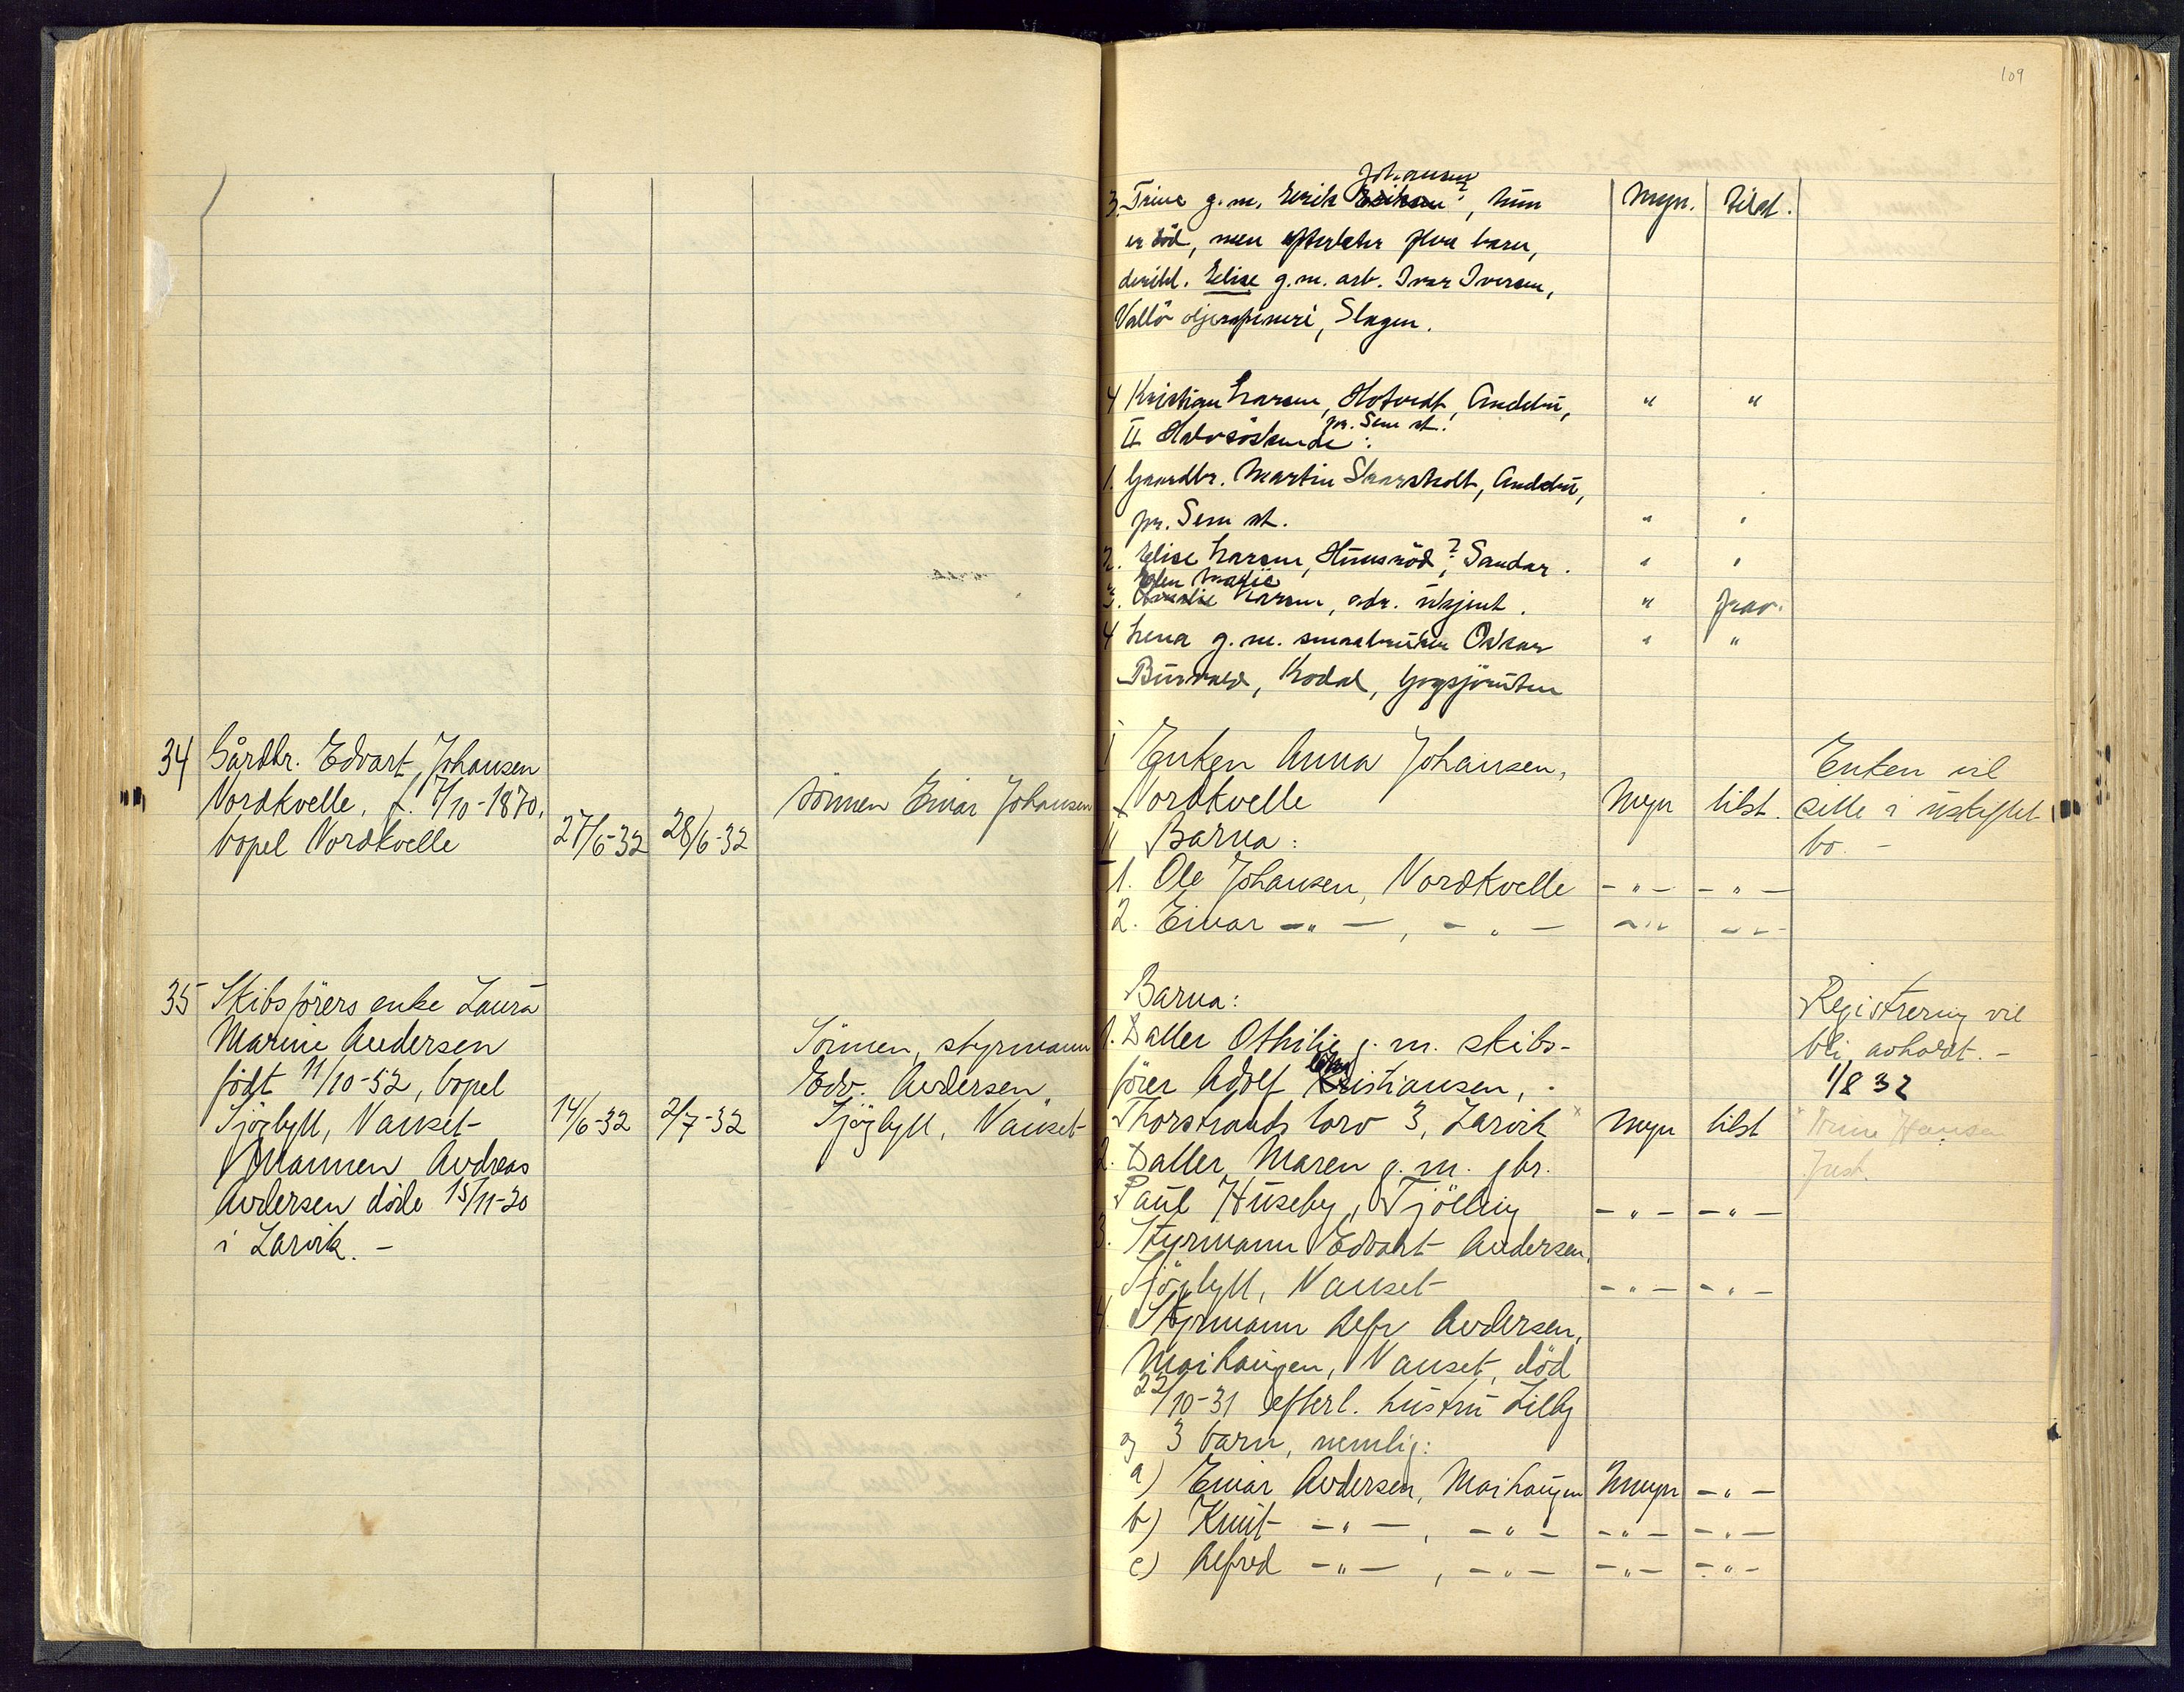 109
3. Trine g.m. Erik Johansen, hun Myn. Tilst.
er død, men efterlater flere barn,
deribl. Elise g.m. arb. Ivar Iversen,
Vallö oljeraffineri, Slagen.
4 Kristian Larsen, Hotvedt, Andebu, " "
pr. Sem st.
II Halvsöskende:
1. Gaardbr. Martin Skarsholt, Andebu,
pr. Sem st. " "
2. Elise Larsen, Hunsröd?, Sandar. " "
Elen Marie
3. Larsen, adr. ukjent. " frav.
4 Lena g.m. smaabruker Oskar " "
Kodal, Gogsjöruten
34 Gårdbr. Edvart Johansen
Nordkvelle, f. 7/10-1870,
bopel Nordkvelle 27/6-32 28/6-32
Sönnen Einar Johansen
I Enken Anna Johansen,
Nordkvelle Myn tilst.
Enken vil
sitte i uskiftet
bo. -
II Barna:
1. Ole Johansen, Nordkvelle -"- -"-
2. Einar -"-, -"- -"- -"-
35 Skibsförers enke Laura
Marine Andersen
födt 11/10-52, bopel
Sjögløtt, Nanset 14/6-32 2/7-32
Mannen Andreas
Andersen döde 15/11-20
i Larvik. -
Sönnen, styrmann
Edv. Andersen,
Nanset
Barna:
1. Datter Othilie g.m. skibs-
förer Adolf Kristiansen,
Thorstrands torv 3, Larvik x Myn tilst
Registrering vil
bli avholdt. -
1/8 32
2. Datter Maren g.m. gbr.
Paul Huseby, Tjölling -"- -"-
3. Styrmann Edvart Andersen,
Nanset -"- -"-
4. Styrmann Alfr Andersen,
Maihaugen, Nanset, död
22/10-31 efterl. hustru Lilly
og 3 barn, nemlig:
a) Einar Andersen, Maihaugen Umyn -"-
b) Knut -"-, -"- -"- -"-
c) Alfred -"-, -"- -"- -"-